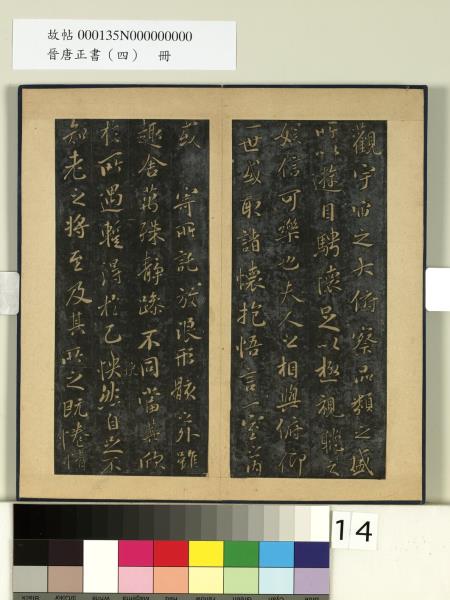 故帖 000135N000000000
晉唐正書（四）　冊
觀宇宙之大俯察品類之盛
所以遊目騁懷足以極視聽之
娛信可樂也夫人之相與俯仰
一世或取諸懷抱悟言一室之內
或寄所託放浪形骸之外雖
趣舍萬殊靜躁不同當其欣
於所遇輒得於己怏然自足不
知老之將至及其所之既惓情
14
Black
3/Color
White
Magenta
Red
Yellow
Green
Cyan
Blue